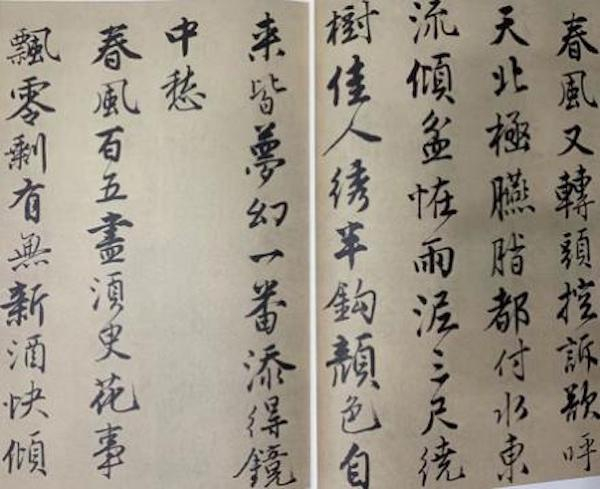 春風又轉頭控訴欲呼
天北極臙脂都付水東
流傾盆恠雨泥三尺繞
樹佳人綉半鈎顔色自
来皆夢幻一番添得鏡
中愁
春風百五盡須臾花事
飄零剩有無新酒快傾